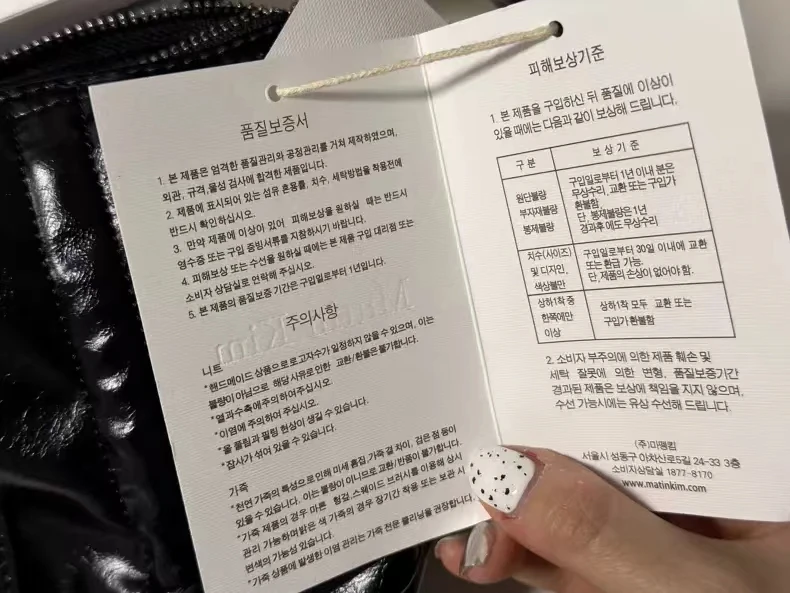 품질보증서
1. 본 제품은 엄격한 품질관리와 공정관리를 거쳐 제작하였으며,
외관, 규격,물성 검사에 합격한 제품입니다.
2. 제품에 표시되어 있는 섬유 혼용률, 치수, 세탁방법을 착용전에
반드시 확인하십시오.
3. 만약 제품에 이상이 있어 피해보상을 원하실 때는 반드시
영수증 또는 구입 증빙서류를 지참하시기 바랍니다.
4. 피해보상 또는 수선을 원하실 때에는 본 제품 구입 대리점 또는
소비자 상담실로 연락해 주십시오.
5. 본 제품의 품질보증 기간은 구입일로부터 1년입니다.
Matin Kim
주의사항
니트
*핸드메이드 상품으로 로고자수가 일정하지 않을 수 있으며, 이는
불량이 아님으로 해당 사유로 인한 교환/환불은 불가합니다.
*열과 수축에 주의 하여주십시오.
*이염에 주의하여 주십시오.
*올 풀림과 필링 현상이 생길 수 있습니다.
*잡사가 섞여 있을 수 있습니다.
가죽
*천연 가죽의 특성으로 인해 미세 흠집,가죽 결 차이, 검은 점 등이
있을 수 있습니다. 이는 불량이 아니므로 교환/반품이 불가합니다.
*가죽 제품의 경우 마른 헝겊,스웨이드 브러시를 이용해 상시
관리 가능하며밝은 색 가죽의 경우 장기간 착용 또는 보관 시
변색의 가능성 있습니다.
*가죽 상품에 발생한 이염 관리는 가죽 전문 클리닝을 권장합니다.
피해보상기준
1. 본 제품을 구입하신 뒤 품질에 이상이
있을 때에는 다음과 같이 보상해 드립니다.
구 분 보 상 기 준
원단불량
부자재불량
봉제불량
구입일로부터 1년 이내 분은
무상수리, 교환 또는 구입가
환불함.
단, 봉제불량은 1년
경과후 에도 무상수리
치수(사이즈)
및 디자인,
색상불만
구입일로부터 30일 이내에 교환
또는 환급 가능.
단, 제품의 손상이 없어야 함.
상하1착 중
한쪽에만
이상
상하1착 모두 교환 또는
구입가 환불함
2. 소비자 부주의에 의한 제품 훼손 및
세탁 잘못에 의한 변형, 품질보증기간
경과된 제품은 보상에 책임을 지지 않으며,
수선 가능시에는 유상 수선해 드립니다.
(주)마뗑킴
서울시 성동구 아차산로5길 24-33 3층
소비자상담실 1877-8170
www.matinkim.com